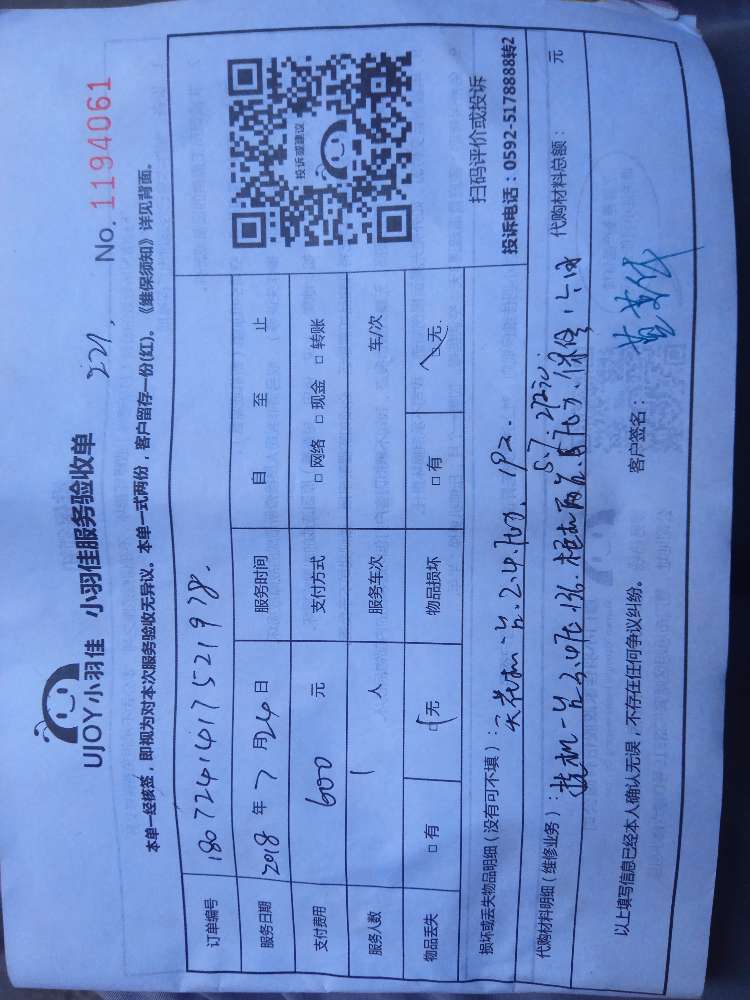 UJOY小羽佳 小羽佳服务验收单
221.
No. 1194061
本单一经核签，即视为对本次服务验收无异议。本单一式两份，客户留存一份(红)。《维保须知》详见背面。
订单编号 1807241417521978.
服务日期 2018 年 7 月 24 日 服务时间 自 至 止
支付费用 600 元 支付方式 □ 网络 □ 现金 □ 转账
服务人数 1 人 服务车次 车/次
物品丢失 □ 有 □ 无 物品损坏 □ 有 □ 无
投诉或建议
扫码评价或投诉
投诉电话：0592-5178888转2
损坏或丢失物品明细（没有可不填）：
代购材料明细（维修业务）：
代购材料总额： 元
以上填写信息已经本人确认无误，不存在任何争议纠纷。
客户签名：